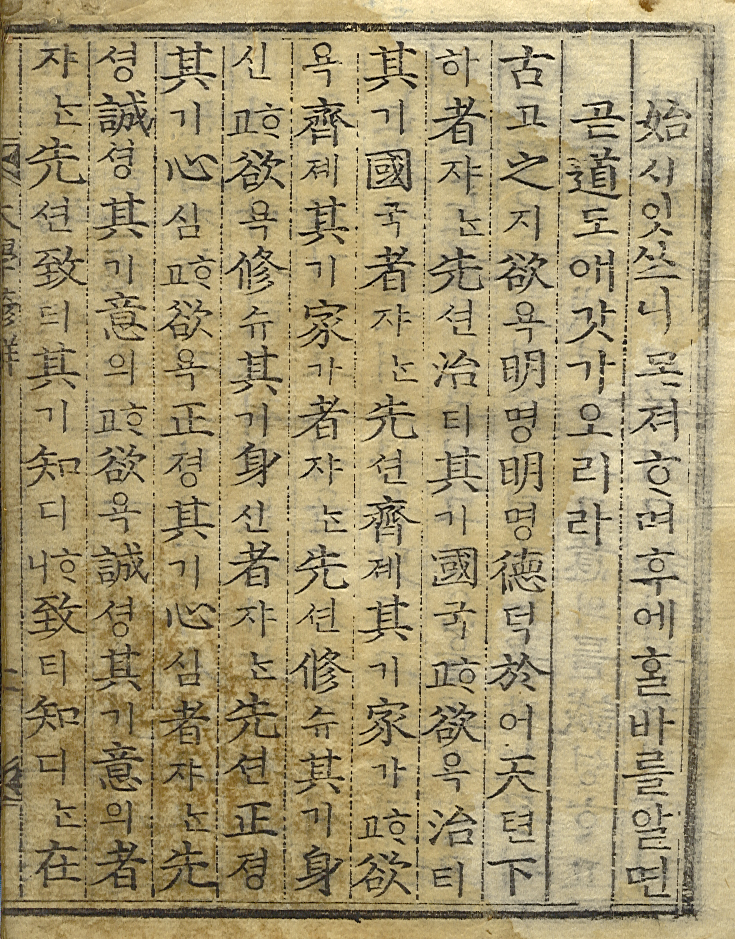 始시잇쓰니몬져ᄒᆞ며후에홀바를알면
곧道도애갓가오리라
古고之지欲욕明명明명德덕於어天텬下
하者쟈ᄂᆞᆫ先션治티其기國국ᄒᆞ고欲욕治티
其기國국者쟈ᄂᆞᆫ先션齊졔其기家가ᄒᆞ고欲
욕齊졔其기家가者쟈ᄂᆞᆫ先션修슈其기身
신ᄒᆞ고欲욕修슈其기身신者쟈ᄂᆞᆫ先션正졍
其기心심ᄒᆞ고欲욕正졍其기心심者쟈ᄂᆞᆫ先
셩誠셩其기意의ᄒᆞ고欲욕誠셩其기意의者
쟈ᄂᆞᆫ先션致티其기知디ᄒᆞ니致티知디ᄂᆞᆫ在
大學諺解